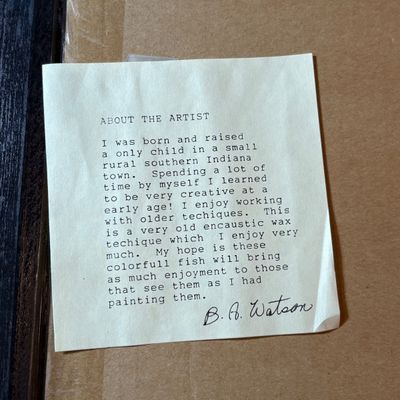 ABOUT THE ARTIST
I was born and raised
a only child in a small
rural southern Indiana
town. Spending a lot of
time by myself I learned
to be very creative at a
early age! I enjoy working
with older techiques. This
is a very old encaustic wax
techique which I enjoy very
much. My hope is these
colorfull fish will bring
as much enjoyment to those
that see them as I had
painting them.
B. A. Watson